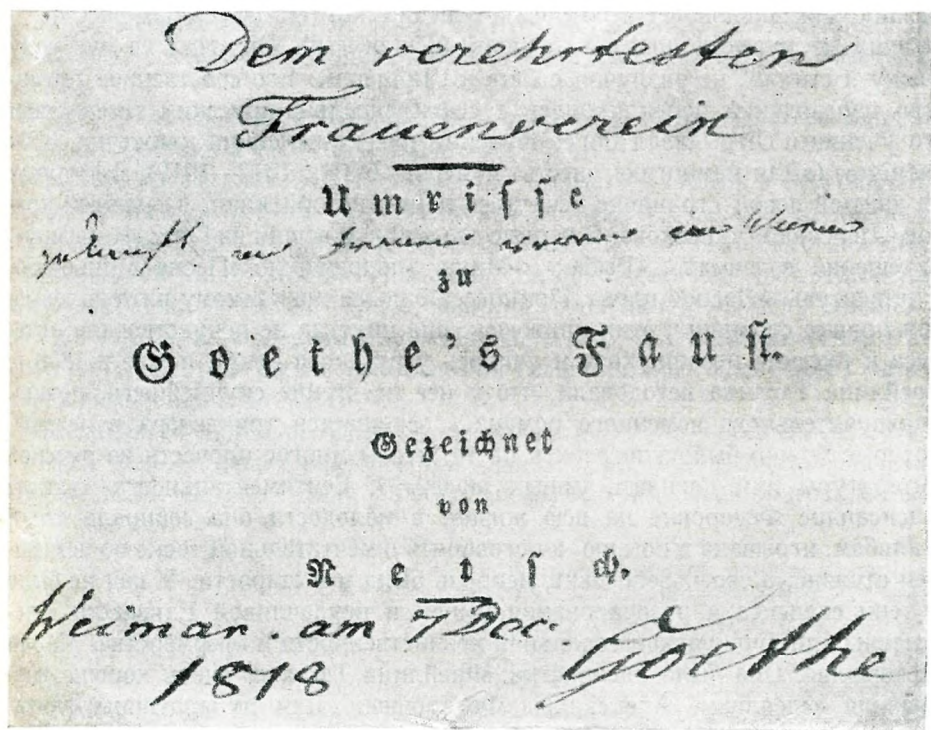 Dem verehrtesten
Frauenverein
Umrisse
zu
Goethe's Faust.
Gezeichnet
von
Retsch.
Weimar. am 7 Dec.
1818 Goethe